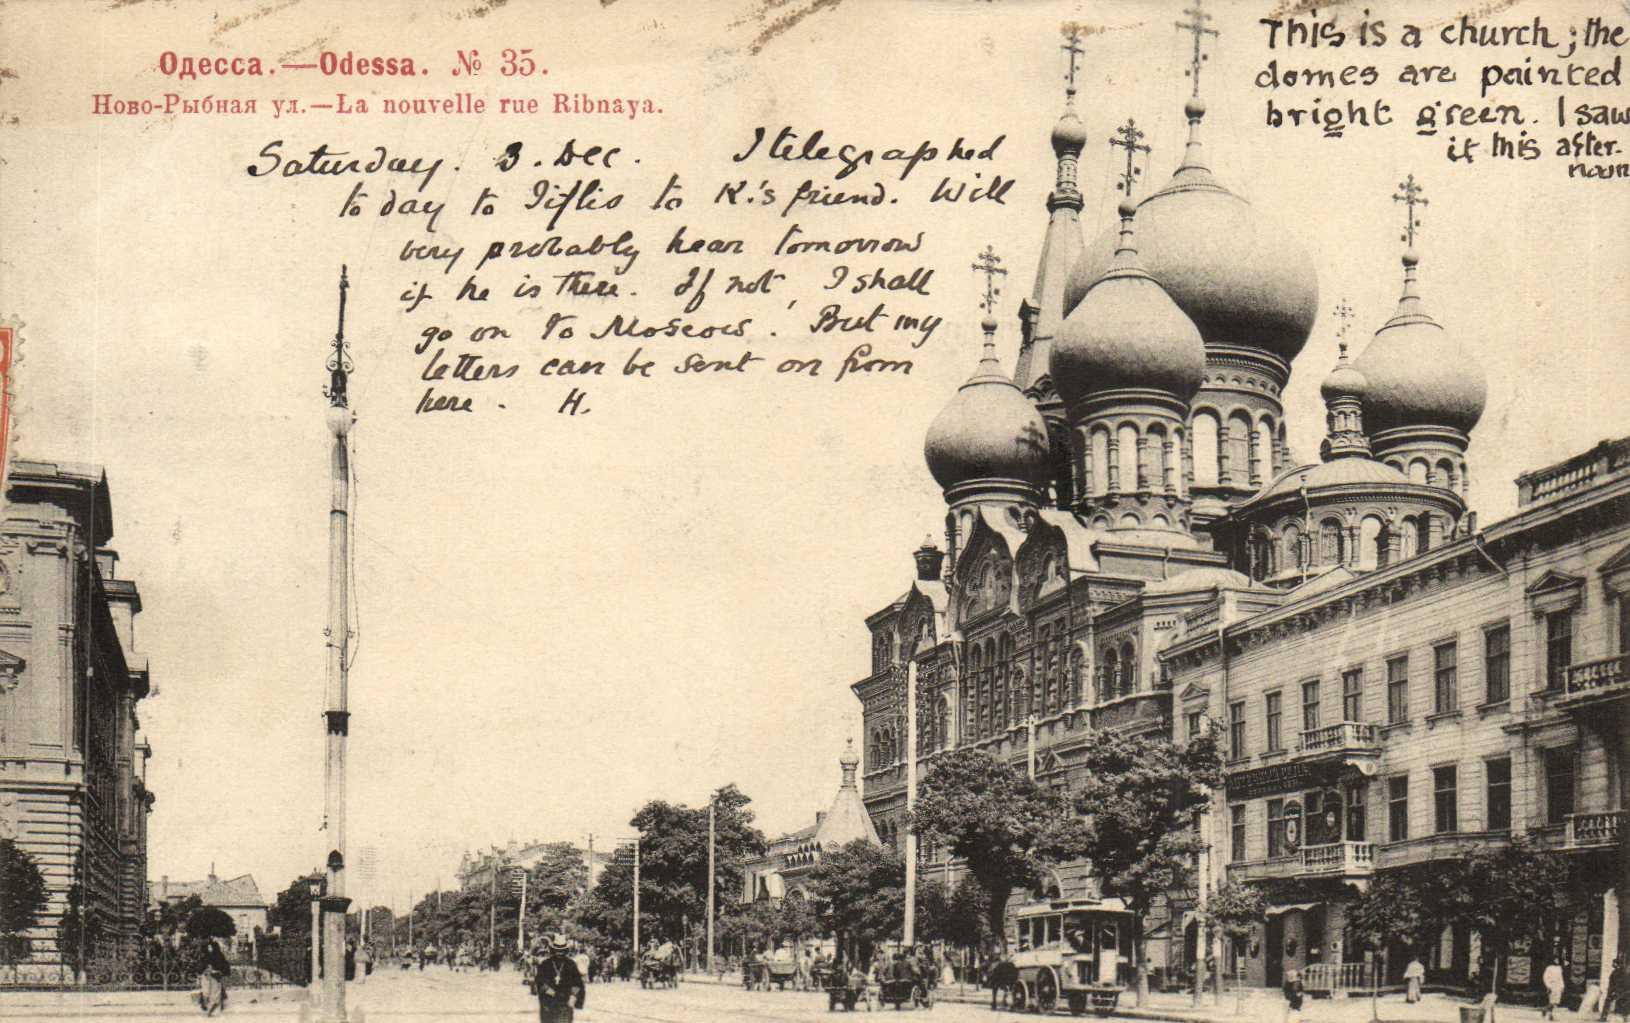 Одесса.—Odessa. № 35.
Ново-Рыбная ул.—La nouvelle rue Ribnaya.
This is a church; the
domes are painted
bright green. I saw
it this after-
noon
Saturday. 3. Dec. I telegraphed
to day to Tiflis to K.'s friend. Will
very probably hear tomorrow
if he is there. If not, I shall
go on to Moscow. But my
letters can be sent on from
here. H.